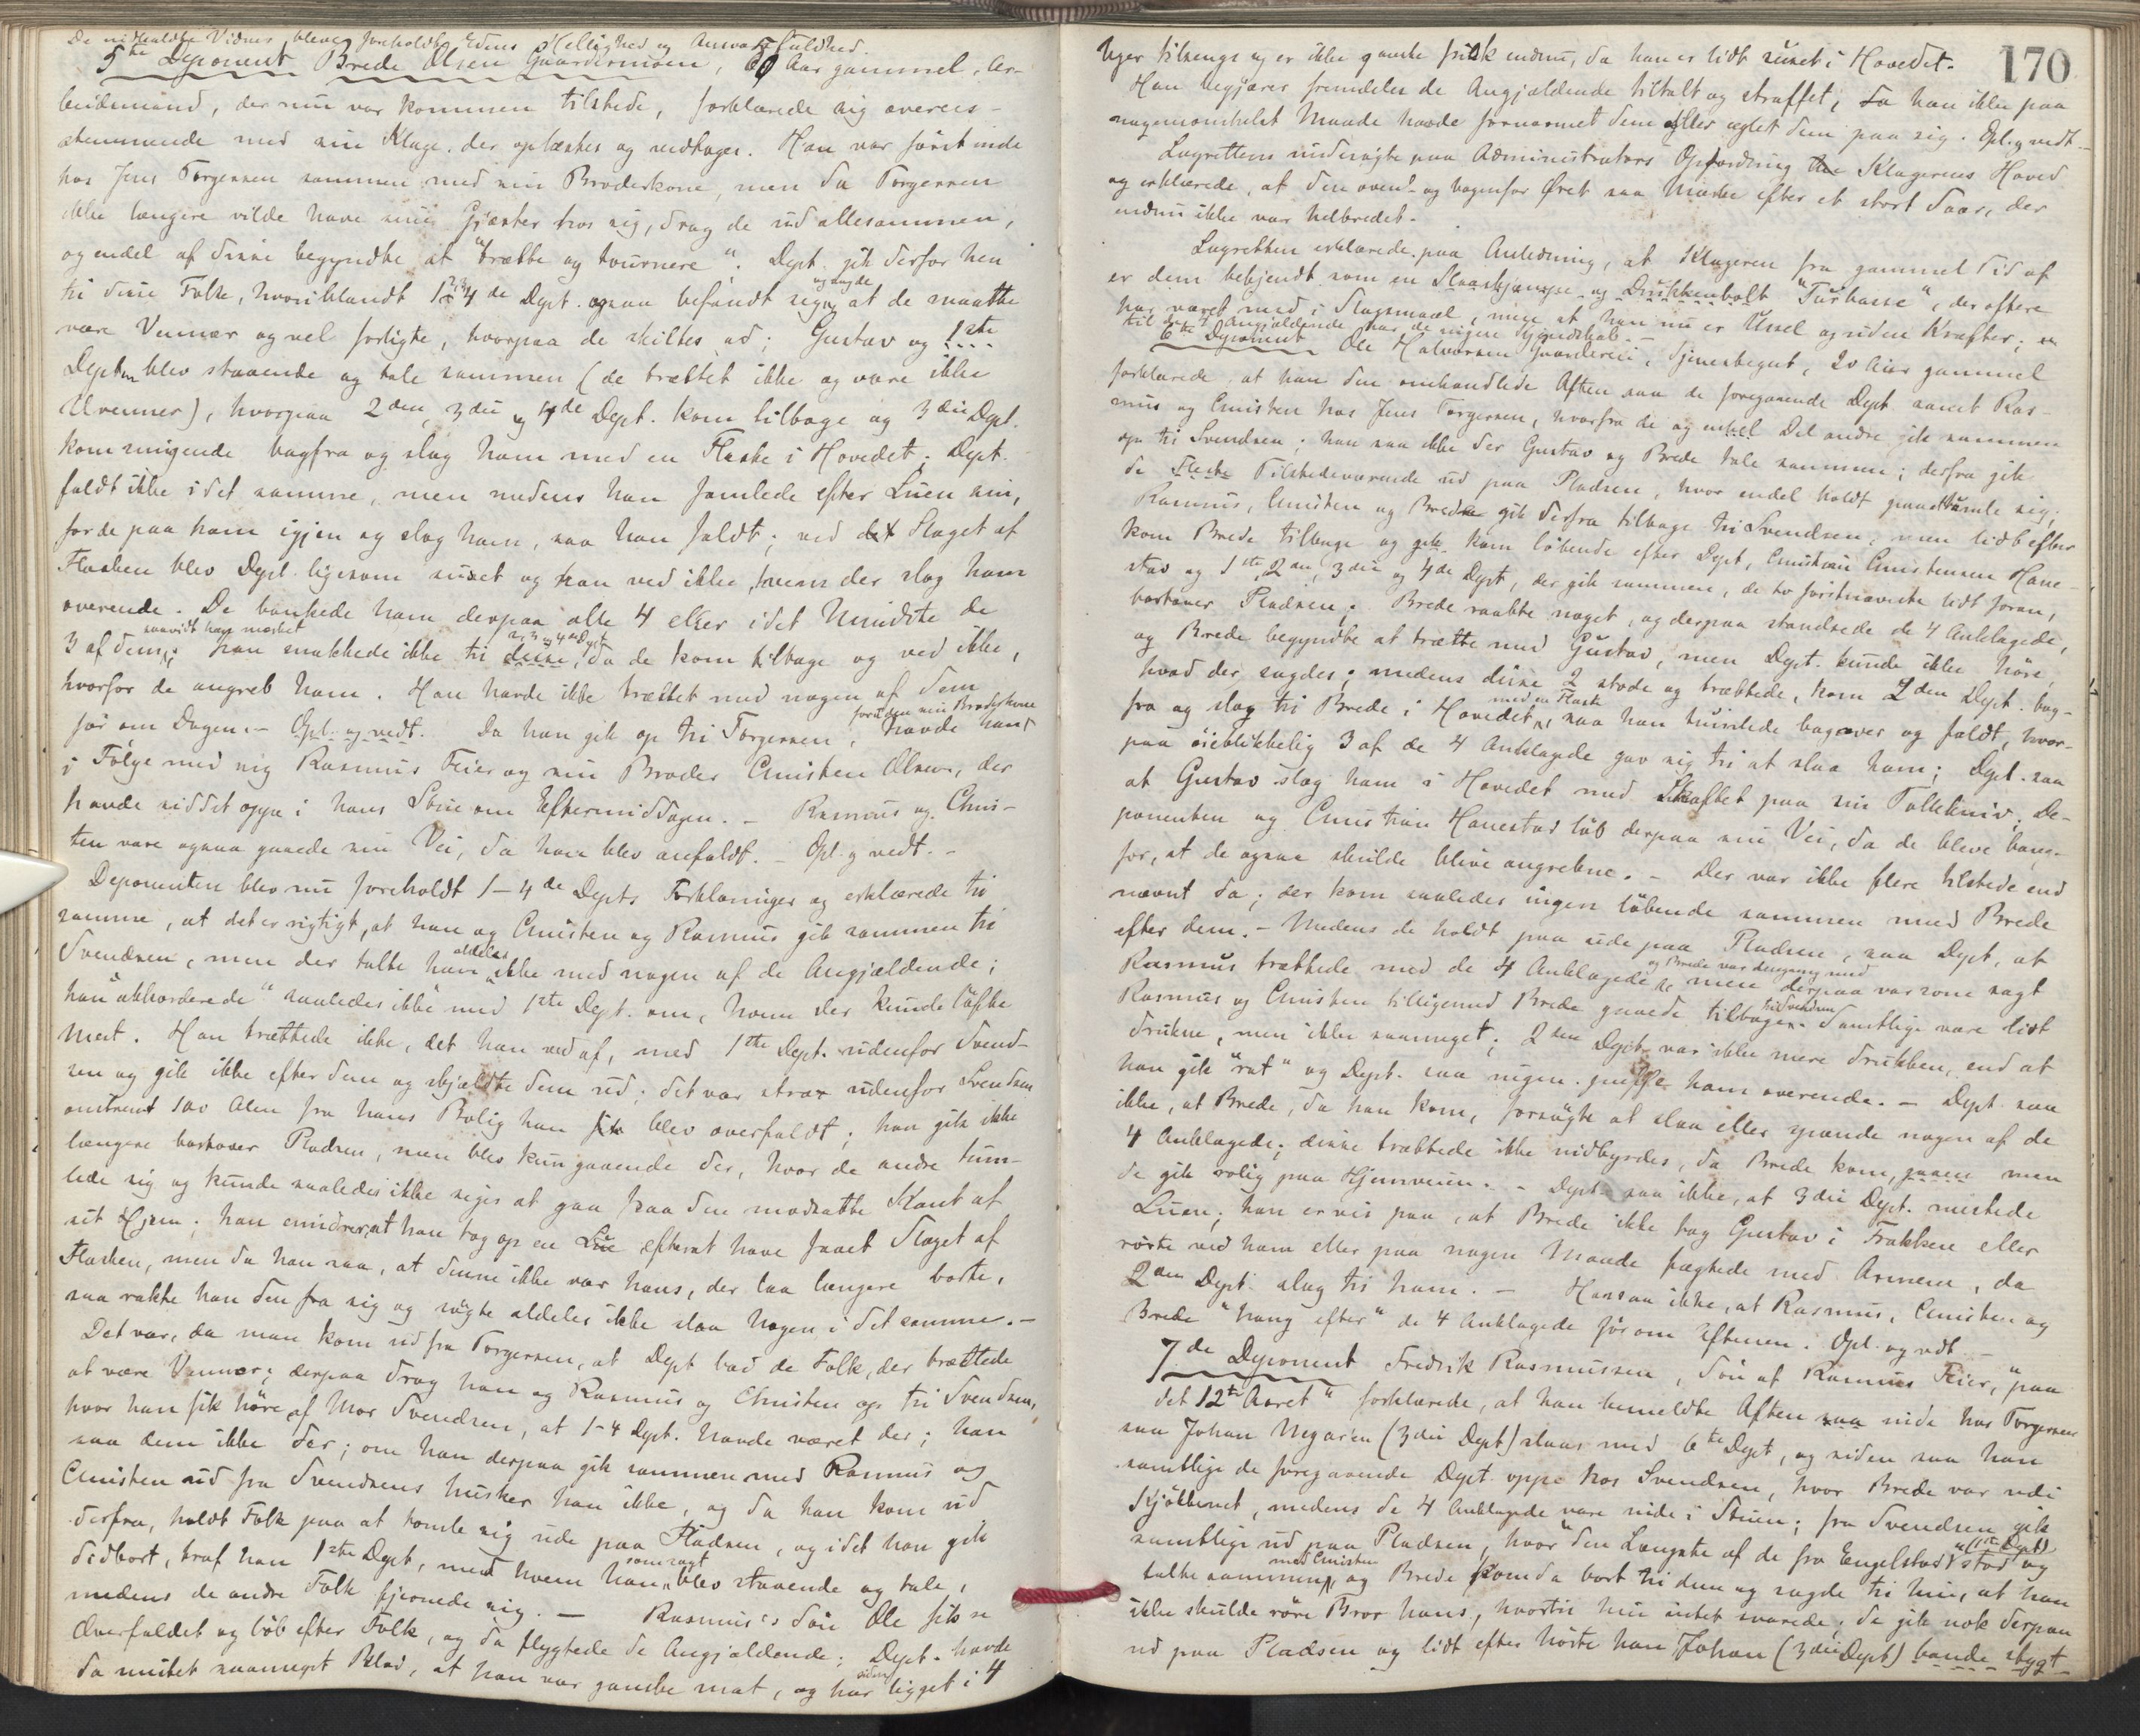 De indkaldte Vidner bleve foreholdte Edens Hellighed og Ansvarsfuldhed.
5te Deponent Brede Olsen Gaardermoen, 50 Aar gammel, Ar-
beidsmand, der nu var kommen tilstede, forklarede sig overens-
stemmende med sin Klage, der oplæstes og vedtoges. Han var først inde
hos Jens Torgersen sammen med sin Broderkone, men da Torgersen
ikke længere vilde have sine Gjæster hos sig, drog de ud allesammen,
og endel af disse begyndte at "trætte og tournere". Dept. gik derfor hen
til disse Folk, hvoriblandt 1, 2, 3, 4de Dept. ogsaa befandt sig, og sagde at de maatte
være Venner og vel forligte, hvorpaa de skiltes ad; Gustav og 1ste
Depten blev staaende og tale sammen (de trættet ikke og vare ikke
Uvenner), hvorpaa 2den, 3die og 4de Dept. kom tilbage og 3die Dept.
kom smigende bagfra og slog ham med en Flaske i Hovedet; Dept.
faldt ikke i det samme, men medens han famlede efter Luen sin,
for de paa ham igjen og slog ham, saa han faldt; ved det Slaget af
Flasken blev Dept. ligesom suset og han ved ikke, hvem der slog ham
overende. De bankede ham derpaa alle 4 eller i det Mindste de
3 af dem, saavidt han mærket; han snakkede ikke til disse, 2, 3 og 4de Dept, da de kom tilbage og ved ikke,
hvorfor de angreb ham. Han havde ikke trættet med nogen af dem
før om Dagen. – Opl. og vedt. Da han gik op til Torgersen, havde han foruden sin Broderkone
i Følge med sig Rasmus Feier og sin Broder Christen Olsen, der
havde siddet oppe i hans Stue om Eftermiddagen. – Rasmus og Chris-
ten vare ogsaa gaaede sin Vei, da han blev anfaldt. – Opl. og vedt. –
Deponenten blev nu foreholdt 1–4de Depts Forklaringer og erklærede til
samme, at det er rigtigt, at han og Christen og Rasmus gik sammen til
Svendsen, men der talte han aldeles ikke med nogen af de Angjældende;
han "akkorderede" saaledes ikke med 1ste Dept. om, hvem der kunde løfte
mest. Han trættede ikke, det han ved af, med 1ste Dept. udenfor Svend-
sen og gik ikke efter dem og skjældte dem ud; det var strax udenfor Svendsen
omtrent 100 Alen fra hans Bolig han blev overfaldt; han gik ikke
længere bortover Pladsen, men blev kun gaaende der, hvor de andre tum-
lede sig og kunde saaledes ikke siges at gaa paa den modsatte Kant af
sit Hjem; han erindrer, at han tog op en Lue efterat have faaet Slaget af
Flasken, men da han saa, at denne ikke var hans, der laa længere borte,
saa rakte han den fra sig og søgte aldeles ikke slaa Nogen i det samme. –
Det var, da man kom ud fra Torgersen, at Dept bad de Folk, der trættede
at være Venner; derpaa drog han og Rasmus og Christen op til Svendsen,
hvor han fik høre af Mor Svendsen, at 1–4 Dept. havde været der; han
saa dem ikke der; om han derpaa gik sammen med Rasmus og
Christen ud fra Svendsens husker han ikke, og da han kom ud
derfra, holdt Folk paa at tomle sig ude paa Pladsen, og idet han gik
didbort, traf han 1ste Dept, med hvem han som sagt blev staaende og tale,
medens de andre Folk fjernede sig. – Rasmus's Søn Ole fik se
Overfaldet og løb efter Folk, og da flygtede de Angjældende; Dept. havde
da mistet saameget Blod, at han var ganske mat, og har siden ligget i 4
170
Uger tilsengs og er ikke ganske frisk endnu, da han er lidt suset i Hovedet.
Han begjærer fremdeles de Angjældende tiltalt og straffet, da han ikke paa
nogensomhelst Maade havde fornærmet dem eller egget dem paa sig. Opl. og vedt. –
Lagrettens undersøgte paa Administrators Opfordring Klagerens Hoved
og erklærede, at den oven- og bagenfor Øret saa Mærke efter et stort Saar, der
endnu ikke var helbredet.
Lagretten erklærede paa Anledning, at Klageren fra gammel Tid af
er dem bekjendt som en Slaaskjæmpe og Drukkenbolt "Turbasse", der oftere
har været med i Slagsmaal, mige at han nu er Ussel og uden Kræfter; en
til de 4 Angjældende har de ingen Kjendskab. –
6te Deponent Ole Halvorsen Gaardereie, tjenestequt, 20 Aar gammel
forklarede at han den omhandlede Aften saa de foregaaende Dept samt Ras-
mus og Christen hos Jens Torgersen, hvorfra de og enhel Del andre gik sammen
op til Svendsen; han saa ikke der Gustav og Brede tale sammen; derfra gik
de fleste Tilstedeværende ud paa Pladsen, hvor endel holdt paa at tumle sig;
Rasmus, Christen og Brede gik derfra tilbage til Svendsen, men lidt efter
kom Brede tilbage og kom løbende efter Dept, Christian Christensen Hane-
stad og 1ste, 2den, 3die og 4de Dept, der gik sammen, de to førstnævnte lidt foran,
bortover Pladsen; Brede raabte noget, og derpaa standsede de 4 Anklagede,
og Brede begyndte at trætte med Gustav, men Dept. kunde ikke høre,
hvad der sagdes; medens disse 2 stode og trættede, kom 2den Dept. bag-
fra og slog til Brede i Hovedet med en Flaske, saa han tumlede bagover og faldt, hvor-
paa øieblikkelig 3 af de 4 Anklagede gav sig til at slaa ham; Dept. saa
at Gustav slog ham i Hovedet med Skaftet paa sin Tollekniv; De-
ponenten og Christian Hanestad løb derpaa sin Vei, da de bleve bange
for, at de ogsaa skulde blive angrebne. – Der var ikke flere tilstede end
nævnt da; der kom saaledes ingen løbende sammen med Brede
efter dem. – Medens de holdt paa ude paa Pladsen, saa Dept. at
Rasmus trættede med de 4 Anklagede og Brede var dengang med, men derpaa var som sagt
Rasmus og Christen tilligemed Brede gaaede tilbage til Svendsen. Samtlige vare lidt
drukne, men ikke saameget; 2den Dept. var ikke mere drukken, end at
han gik "rat" og Dept. saa ingen puffe ham overende. – Dept. saa
ikke, at Brede, da han kom, forsøgte at slaa eller spænde nogen af de
4 Anklagede; disse trættede ikke indbyrdes, da Brede kom, men
de gik rolig paa Hjemveien. – Dept. saa ikke, at 3die Dept. mistede
Luen; han er vis paa, at Brede ikke tog Gustav i Frakken eller
rørte ved ham eller paa nogen Maade fægtede med Armene, da
2den Dept. slog til ham. – Han saa ikke, at Rasmus, Christen og
Brede "hang efter" de 4 Anklagede før om Aftenen. Opl. og vedt. –
7de Deponent Fredrik Rasmussen, Søn af Rasmus Feier, "paa
det 12te Aaret" forklarede, at han bemeldte Aften inde hos Torgersen
saa Johan Negaren (3die Dept) slaas med 6te Dept, og siden saa han
samtlige de foregaaende Dept. oppe hos Svendsen, hvor Brede var ude i
Kjøkkenet, medens de 4 Anklagede vare inde i Stuen; fra Svendsen gik
samtlige ud paa Pladsen, hvor "den Længste af de fra Engelstad" (1ste Dept) stod og
talte sammen med Christen, og Brede kom da bort til dem og sagde til hin, at han
ikke skulde røre Bror hans, hvortil hin intet svarede; de gik nok derpaa
ud paa Pladsen og lidt efter hørte han Johan (3die Dept) bande stygt